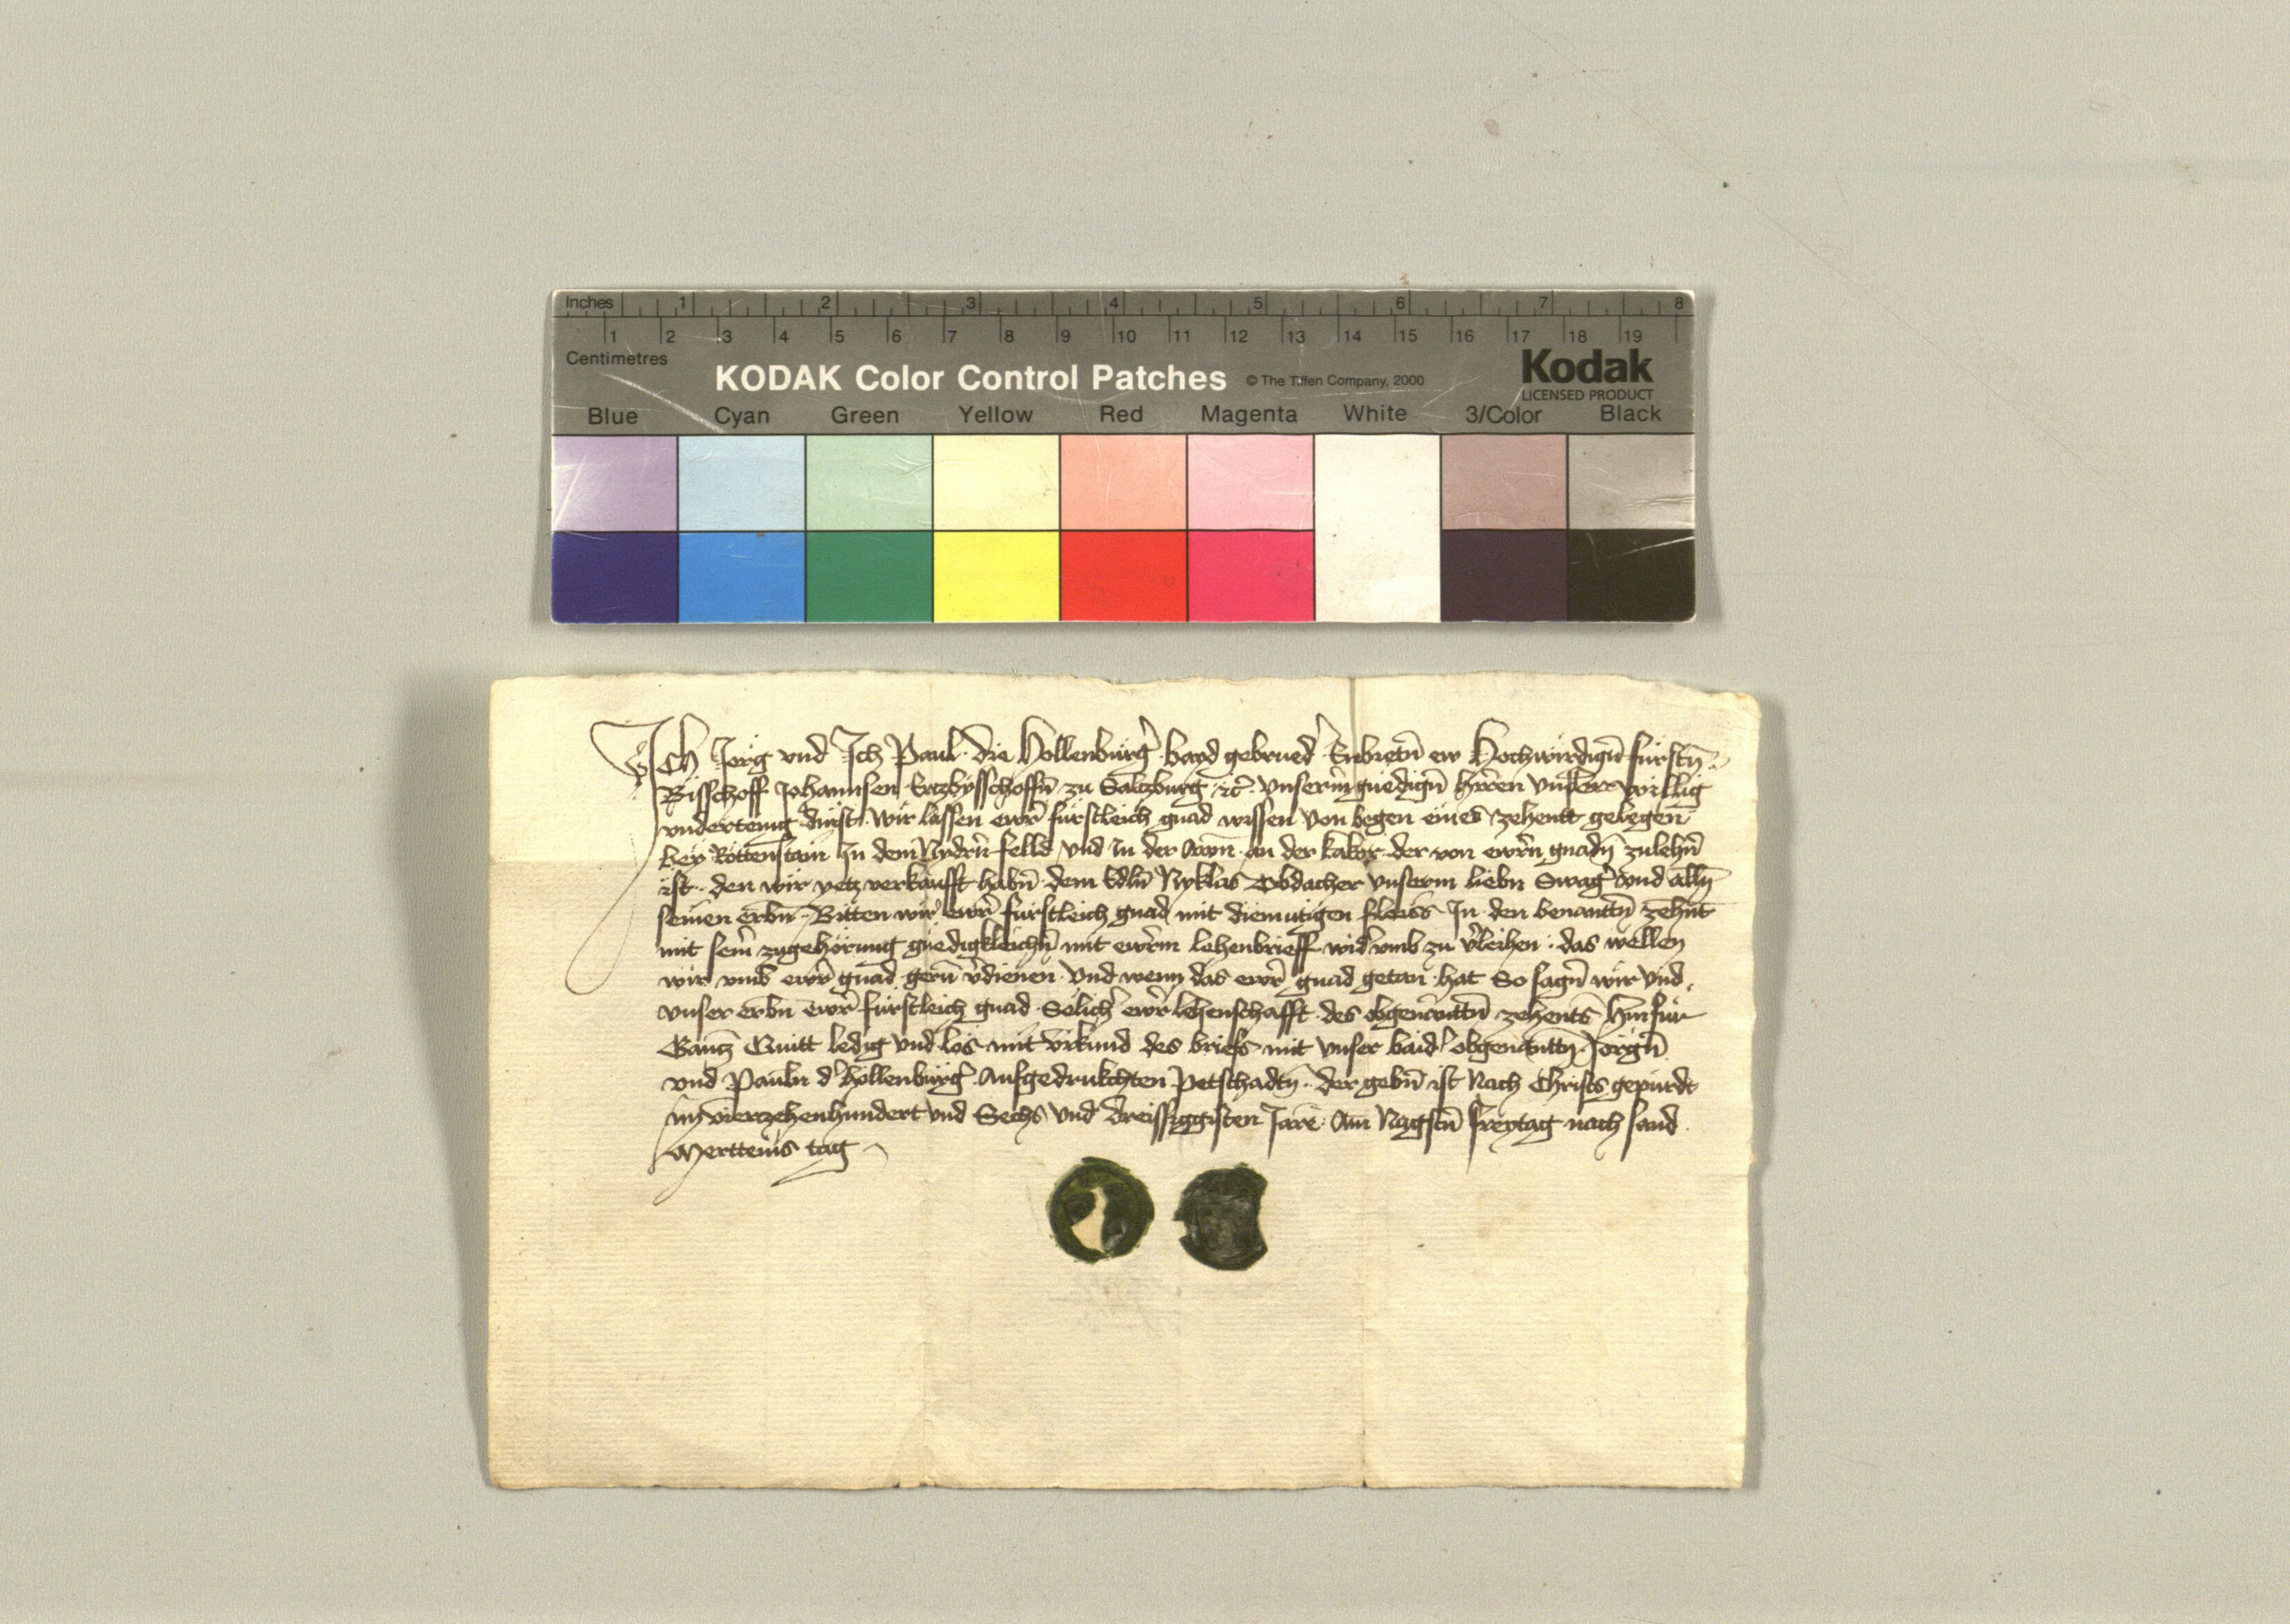 Inches 1 2 3 4 5 6 7 8
1 2 3 4 5 6 7 8 9 10 11 12 13 14 15 16 17 18 19
Centimetres
KODAK Color Control Patches © The Tiffen Company, 2000 Kodak
LICENSED PRODUCT
Blue Cyan Green Yellow Red Magenta White 3/Color Black
Ich Jorg vnd Ich Paul die Hollenburg̉ bayd gebrued̉ Enbietn̄ ew Hochwirdign̄ fürstn̄
Bisschoff Johannsen Erczbysschoffn̄ zu Salczburg etc̄ vnserm gnedign̄ hr̄ren vnser willig
vndertenig dinst. wir lassen ewr̄ fürstleich gnad wissen von wegen eines zehentt gelegen
bey Rottenstain In dem Nydrn̄ felld vnd In der Awn̄ an der der von ewrn̄ gnadn̄ zulehn̄
ist. den wir yetz verkaufft habn̄ dem Edln̄ Nyklas Obdacher vnserm liebn Swag̉ vnd alln̄
seinen erbn̄. Bitten wir ewr̄ fürstleich gnad mit diemutigen fleiss In den benanttn̄ zehnt
mit sein̄ zugehörung gnedigkleichn̄ mit ewr̄m lehenbrieff wid̉ vmb zu v̉leihen. das wellen
wir vmb ewr̄ gnad gern̄ v̉dienen. vnd wenn das ewr̄ gnad getan hat So sagn̄ wir vnd
vnser erbn̄ ewr̄ fürstleich gnad Sölich̉ ewr̄ lehenschafft des obgenanttn̄ zehents hinfür
Gancz Quitt ledig vnd los mit vrkund des briefs mit vnser baid̉ obgenanttn̄ Jorgn̄
vnd Pauln d̉ hollenbürg̉ Aufgedrukchten Petschadtn̄. der gebn̄ ist Nach Christs gepurde
Im vierzehenhundert vnd Sechs vnd dreissiggisten Jare. Am Nagstn̄ freytag nach sand
Merttenis tag